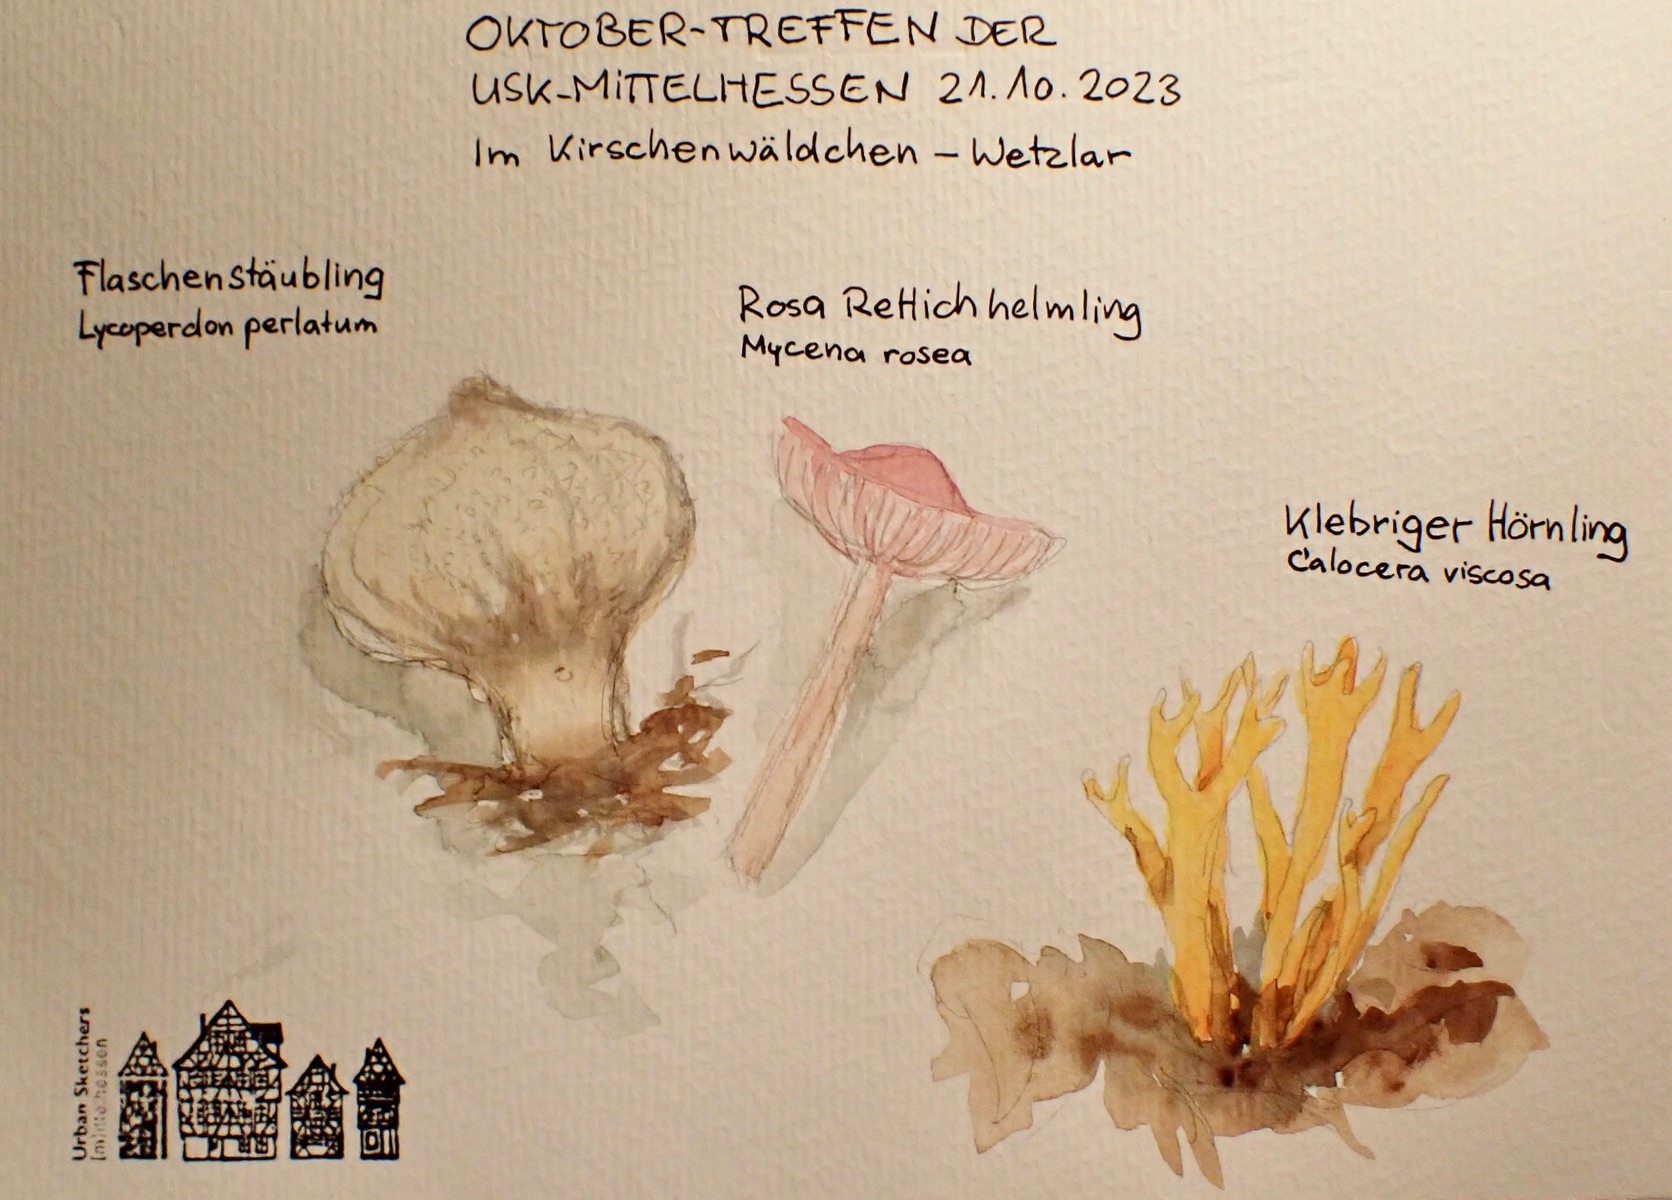 OKTOBER-TREFFEN DER
USK-MITTELHESSEN 21.10.2023
Im Kirschenwäldchen – Wetzlar
Flaschenstäubling
Lycoperdon perlatum
Rosa Rettichhelmling
Mycena rosea
Klebriger Hörnling
Calocera viscosa
Urban Sketchers
[m]ittelhessen